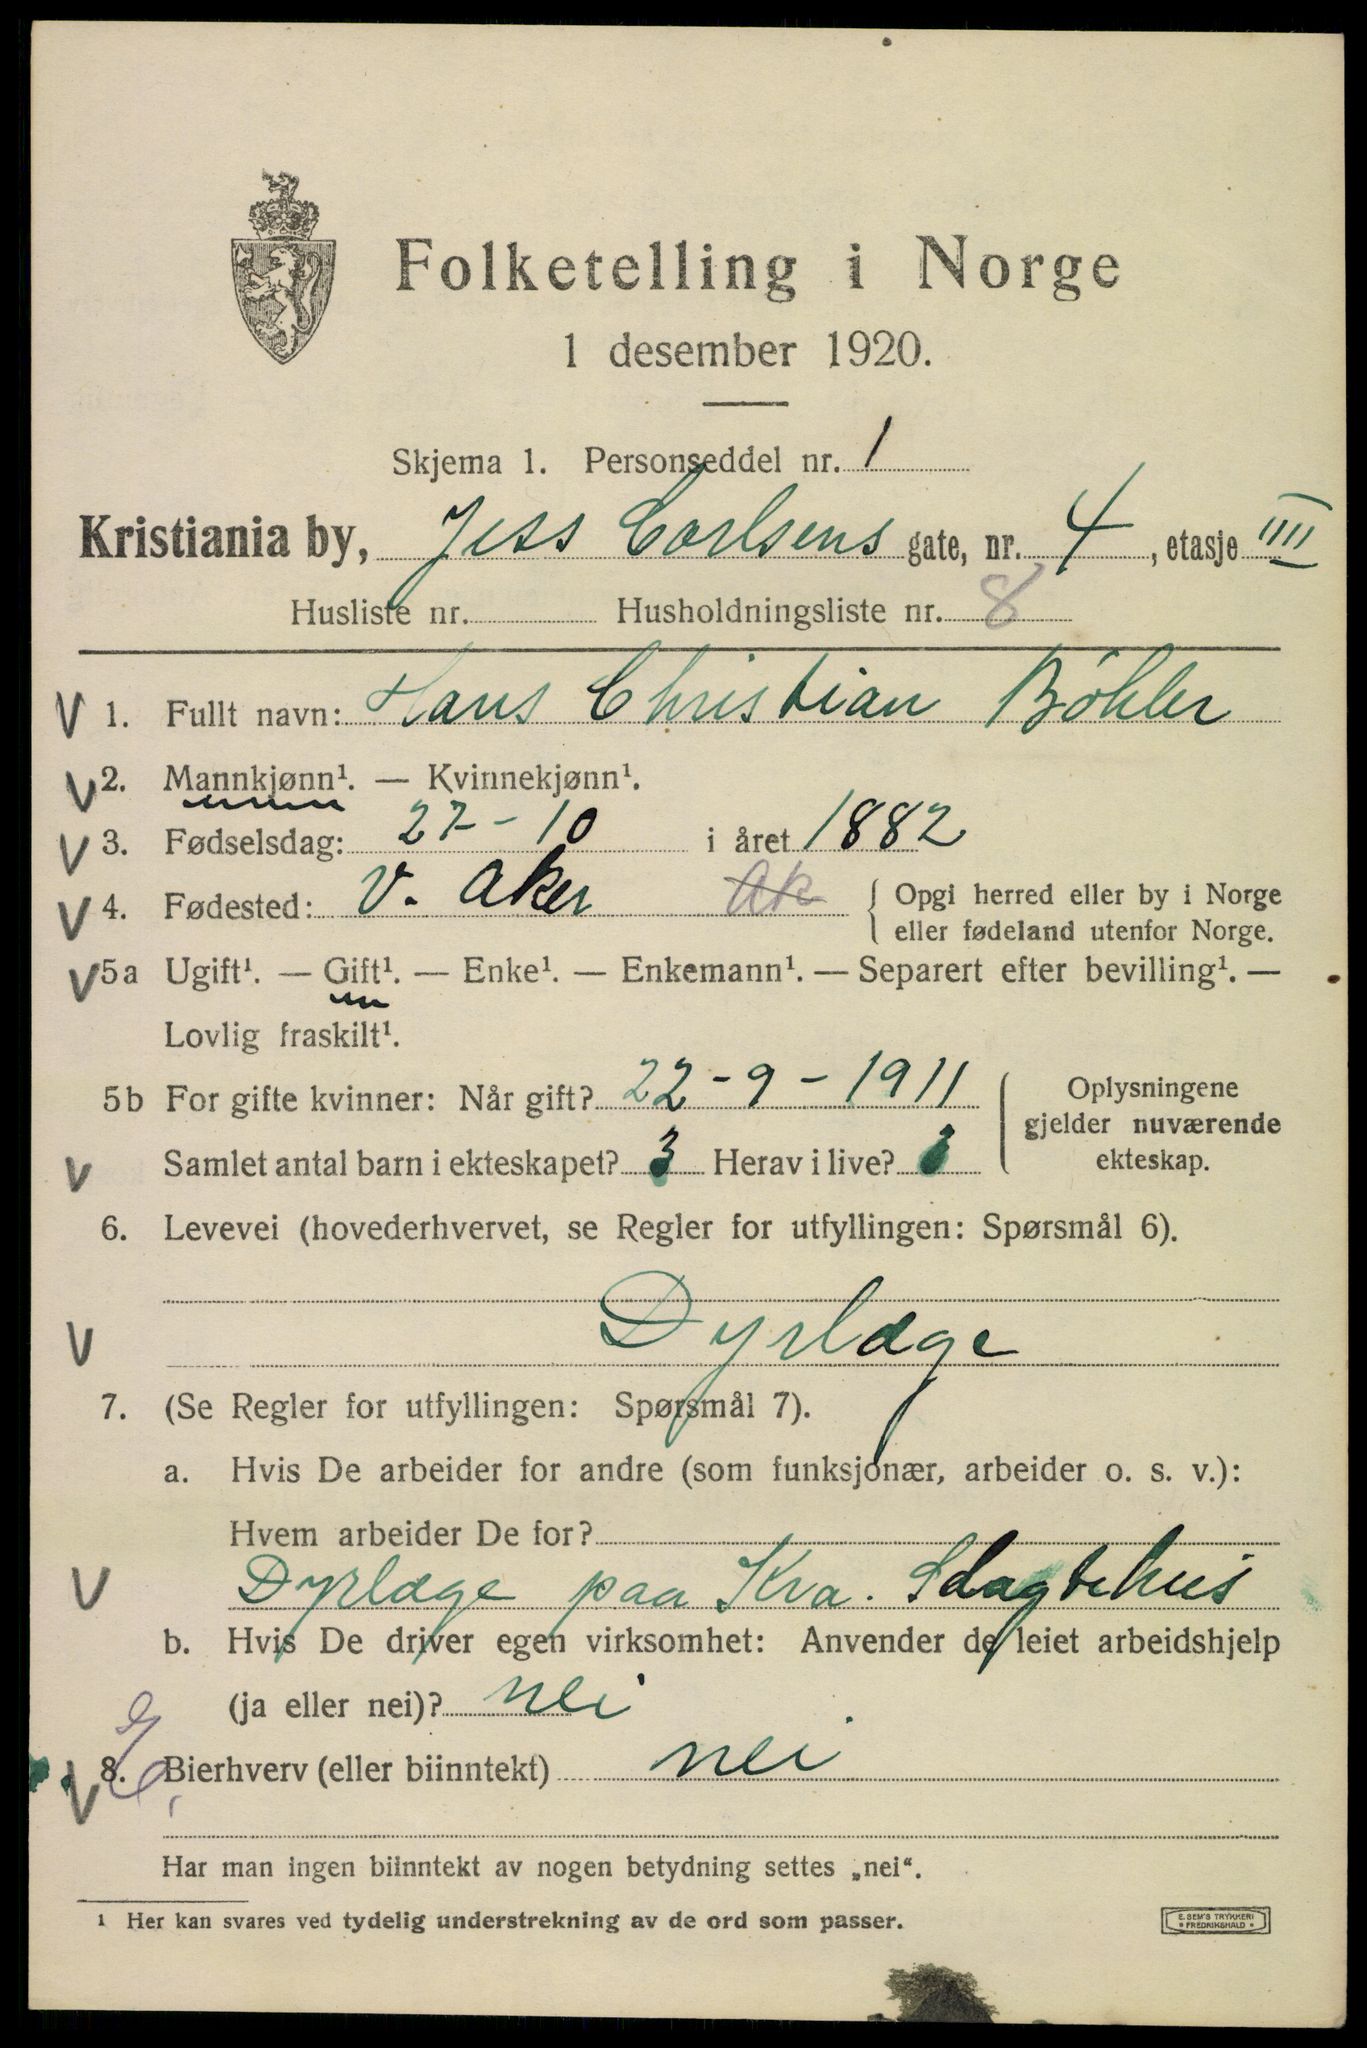 Folketelling i Norge
1 desember 1920.
Skjema 1. Personseddel nr. 1
Kristiania by, Jess Carlsens gate, nr. 4, etasje IIII
Husliste nr. Husholdningsliste nr. 8
V 1. Fullt navn: Hans Christian Böhler
V 2. Mannkjønn¹. — Kvinnekjønn¹.
V 3. Fødselsdag: 27-10 i året 1882
V 4. Fødested: V. Aker Ak { Opgi herred eller by i Norge
eller fødeland utenfor Norge.
V 5a Ugift¹. — Gift¹. — Enke¹. — Enkemann¹. — Separert efter bevilling¹. —
Lovlig fraskilt¹.
5b For gifte kvinner: Når gift? 22-9-1911 { Oplysningene
gjelder nuværende
V Samlet antal barn i ekteskapet? 3 Herav i live? 3 ekteskap.
6. Levevei (hovederhvervet, se Regler for utfyllingen: Spørsmål 6).
V Dyrlæge
7. (Se Regler for utfyllingen: Spørsmål 7).
a. Hvis De arbeider for andre (som funksjonær, arbeider o. s. v.):
Hvem arbeider De for?
V Dyrlæge paa Kra. Slagtehus
b. Hvis De driver egen virksomhet: Anvender de leiet arbeidshjelp
(ja eller nei)? nei
V 8. Bierhverv (eller biinntekt) nei
Har man ingen biinntekt av nogen betydning settes „nei“.
¹ Her kan svares ved tydelig understrekning av de ord som passer.
E. SEM'S TRYKKERI
* FREDRIKSHALD *